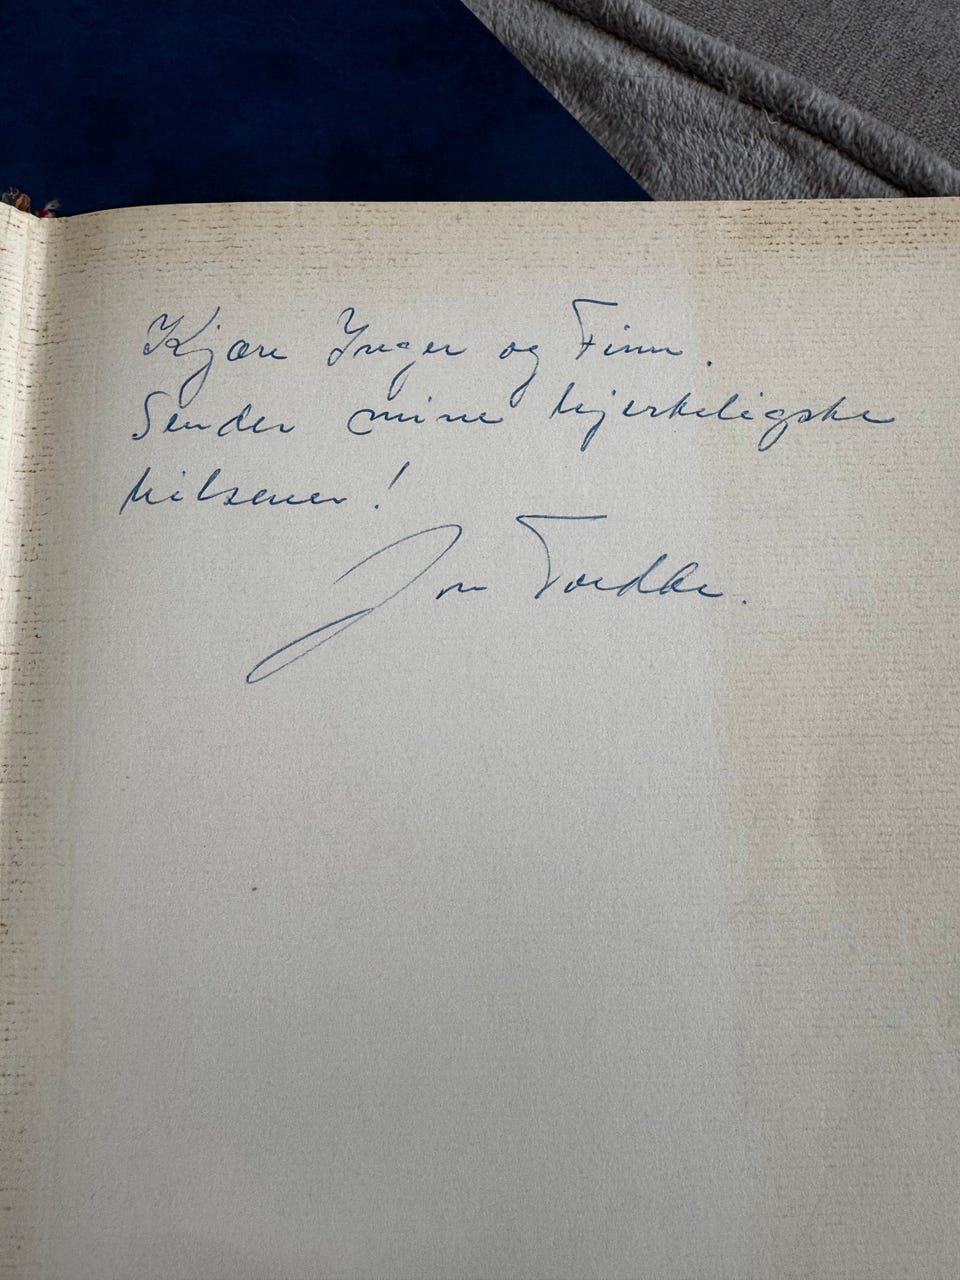 Kjære Inger og Finn.
Sender mine hjerteligste
hilsener!
Jon